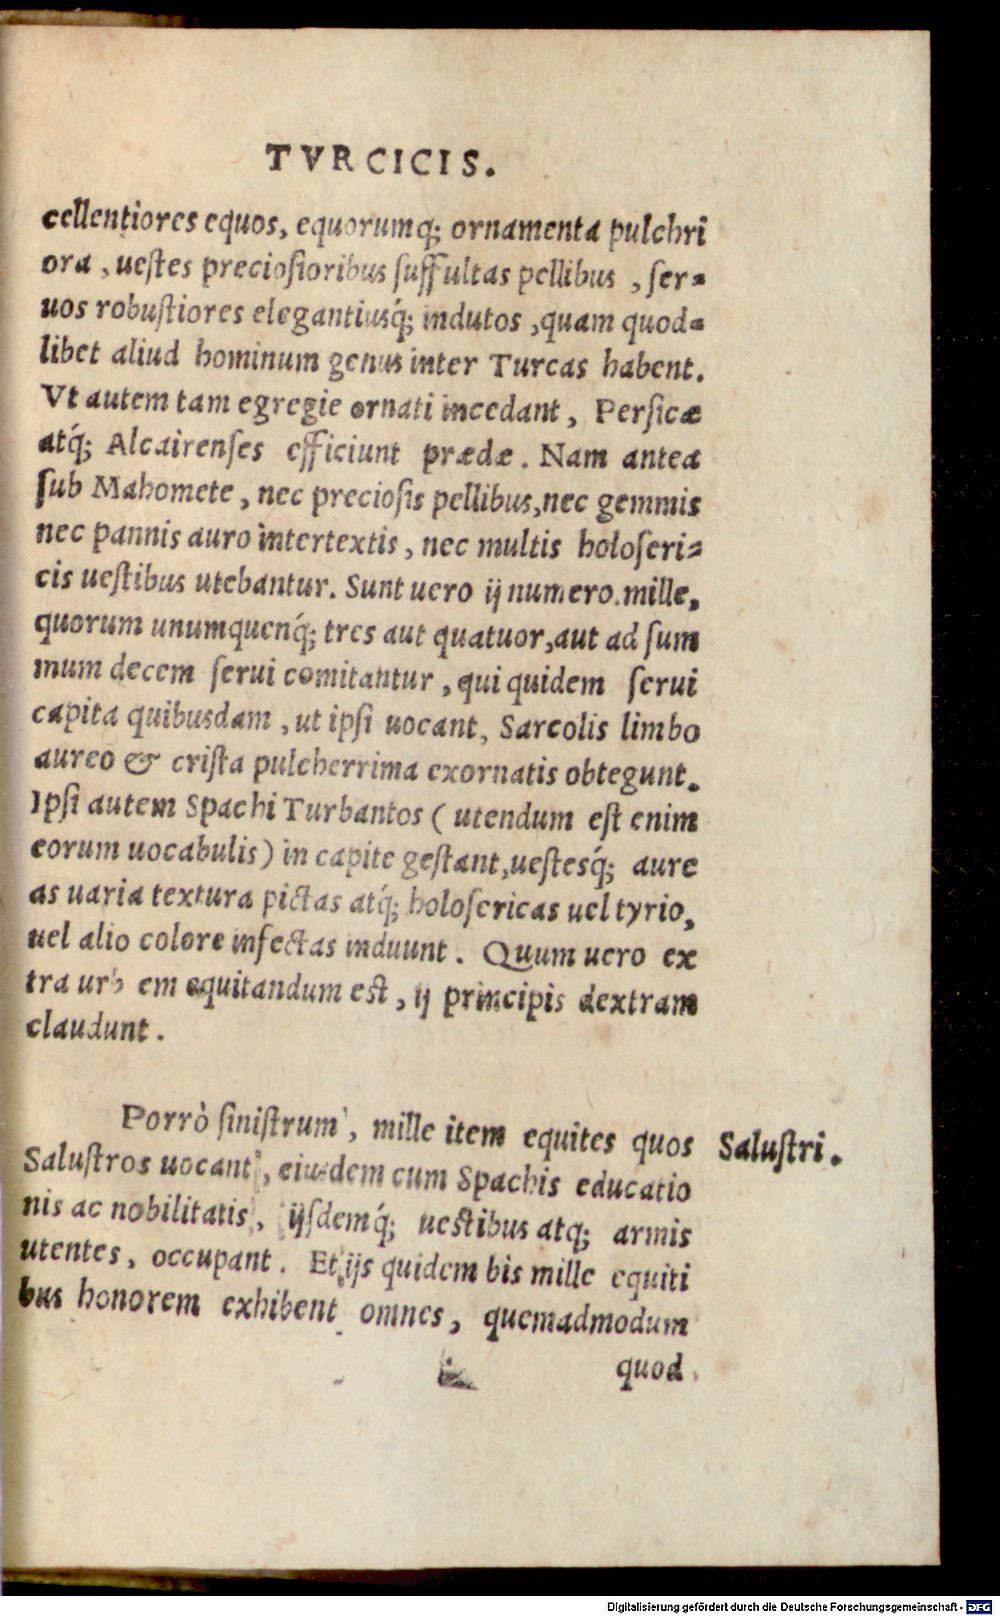 TVRCICIS.
cellentiores equos, equorumq́; ornamenta pulchri
ora, uestes preciosioribus suffultas pellibus, ser-
uos robustiores elegantiusq́; indutos, quam quod-
libet aliud hominum genus inter Turcas habent.
Vt autem tam egregie ornati incedant, Persicæ
atq́; Alcairenses efficiunt prædæ. Nam antea
sub Mahomete, nec preciosis pellibus, nec gemmis
nec pannis auro intertextis, nec multis holoseri-
cis uestibus utebantur. Sunt uero ij numero mille,
quorum unumquenq́; tres aut quatuor, aut ad sum
mum decem serui comitantur, qui quidem serui
capita quibusdam, ut ipsi uocant, Sarcolis limbo
aureo & crista pulcherrima exornatis obtegunt.
Ipsi autem Spachi Turbantos (utendum est enim
eorum uocabulis) in capite gestant, uestesq́; aure
as uaria textura pictas atq́; holosericas uel tyrio,
uel alio colore infectas induunt. Quum uero ex
tra urbem equitandum est, ij principis dextram
claudunt.
Porrò sinistrum, mille item equites quos
Salustri.
Salustros uocant, eiusdem cum Spachis educatio
nis ac nobilitatis, ijsdemq́; uestibus atq; armis
utentes, occupant. Et ijs quidem bis mille equiti
bus honorem exhibent omnes, quemadmodum
quod
Digitalisierung gefördert durch die Deutsche Forschungsgemeinschaft - DFG